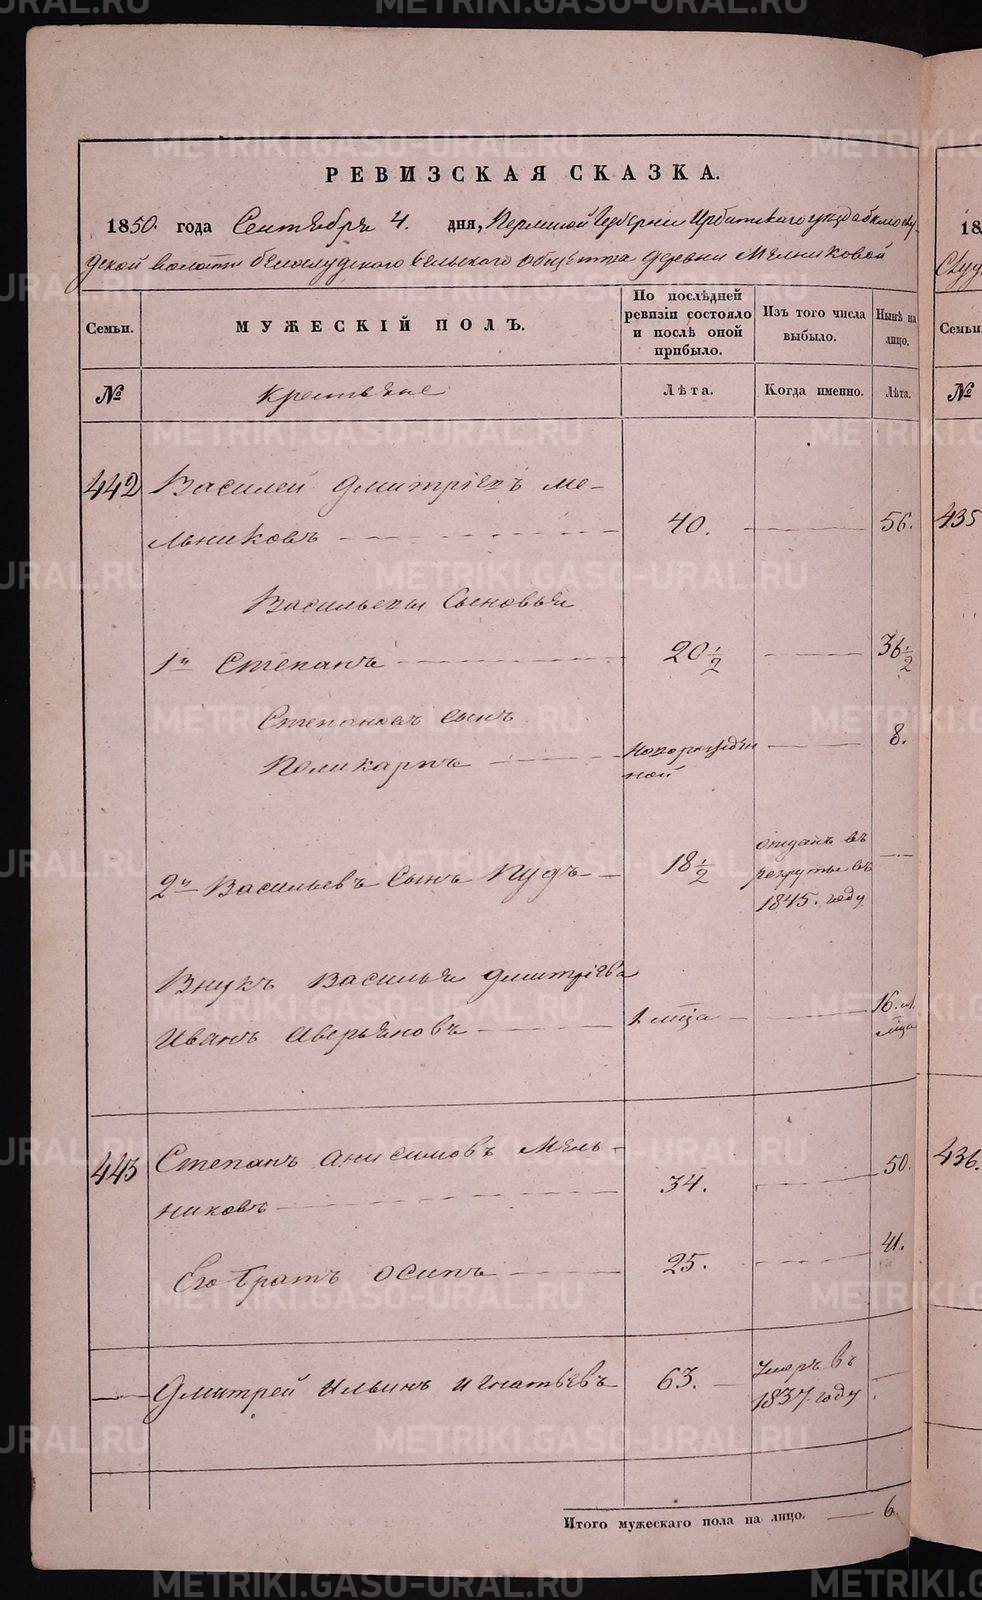 РЕВИЗСКАЯ СКАЗКА.
1850. года Сентября 4. дня, Пермской Губернии Ирбитского уезда белослу-
дской волости белослудского сельского общества деревни Мельниковой
Семьи.
МУЖЕСКІЙ ПОЛЪ.
По послѣдней
ревизіи состояло
и послѣ оной
прибыло.
Изъ того числа
выбыло.
Нынѣ на
лицо.
№
крестьяне
Лѣта.
Когда именно.
Лѣта.
442
Василей Дмитріевъ Ме-
льниковъ
40.
56.
Васильевы Сыновья
1й Степанъ
20 1/2
36 1/2
Степановъ сынъ
Поликарпъ
новорожден
ной
8.
2й Васильевъ Сынъ Пудъ
18 1/2
отданъ въ
рекруты въ
1845. году
Внукъ Василья Дмитріева
Иванъ Аверьяновъ
1. мца
16. л. 1.
мца
443
Степанъ Анисимовъ Мель-
никовъ
34.
50.
Его братъ Осипъ
25.
41.
Дмитрей Ильинъ Игнатьевъ
63.
Умеръ въ
1837. году
Итого мужескаго пола на лицо.
6.
18
Суд
Семьи
№
435
436.
METRIKI.GASO-URAL.RU